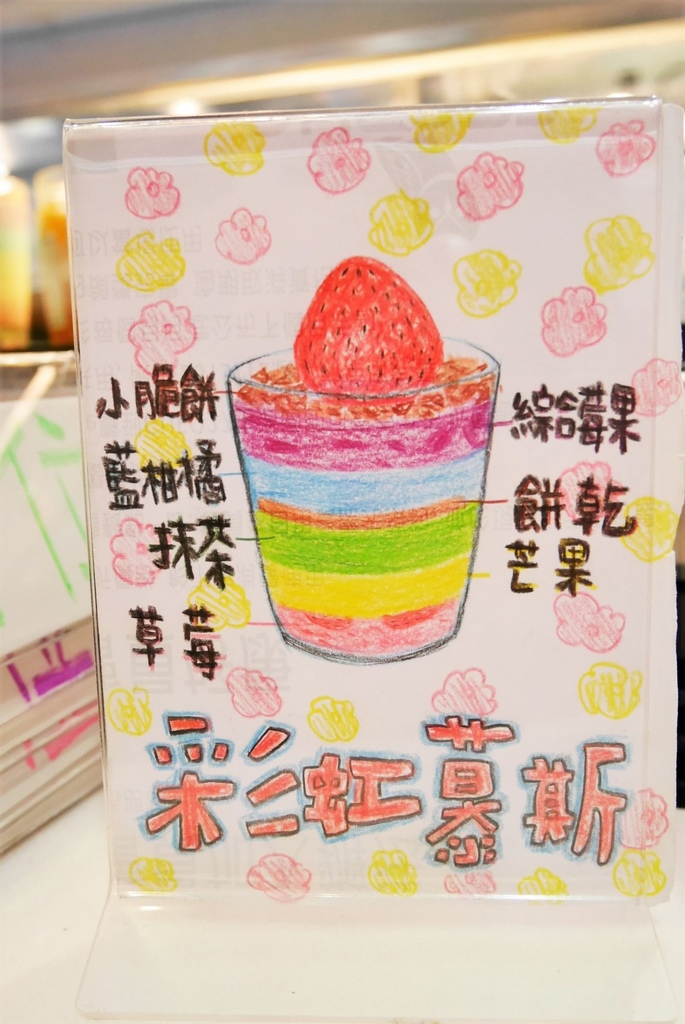 小脆餅
綜合莓果
藍柑橘
餅乾
抹茶
芒果
草莓
彩虹慕斯